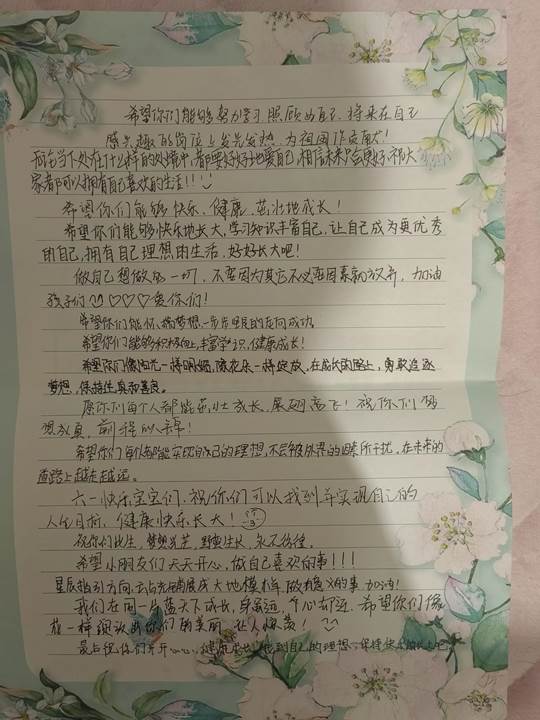 希望你们能够努力学习,照顾好自己,将来在自己
感兴趣的岗位上发光发热,为祖国作贡献!
无论当下处在什么样的处境中,都要好好地爱自己,相信未来会更好,祝大
家都可以拥有自己喜欢的生活!!!
希望你们能够快乐、健康、茁壮地成长!
希望你们能够快乐地长大,学习知识丰富自己,让自己成为更优秀
的自己,拥有自己理想的生活,好好长大吧!
做自己想做的一切,不要因为其它不必要因素就放弃,加油
孩子们 ♡♡♡爱你们!
希望你们能 梦想,一步步 的走向成功。
希望你们能够积极向上,丰富学识,健康成长!
希望你们像阳光一样明媚,像花朵一样绽放,在成长的路上,勇敢追逐
梦想,保持住真和善良。
愿你们每个人都能茁壮成长,展翅高飞!祝你们梦
想成真,前程似锦!
希望你们每个人都能实现自己的理想,不会被外界的 所干扰,在未来的
道路上越走越远。
六一快乐宝宝们,祝你们可以找到并实现自己的
人生目标,健康快乐长大!
祝你们此生,梦想光芒,野蛮生长,永不彷徨。
希望小朋友们天天开心,做自己喜欢的事!!!
星辰指引方向, 大地 做有意义的事 加油!
我们在同一片蓝天下成长,身虽远,但心却近,希望你们像
花一样绽放出你们的美丽,让人惊羡!
最后祝你们开开心心、健康 找到自己的理想,保持快乐